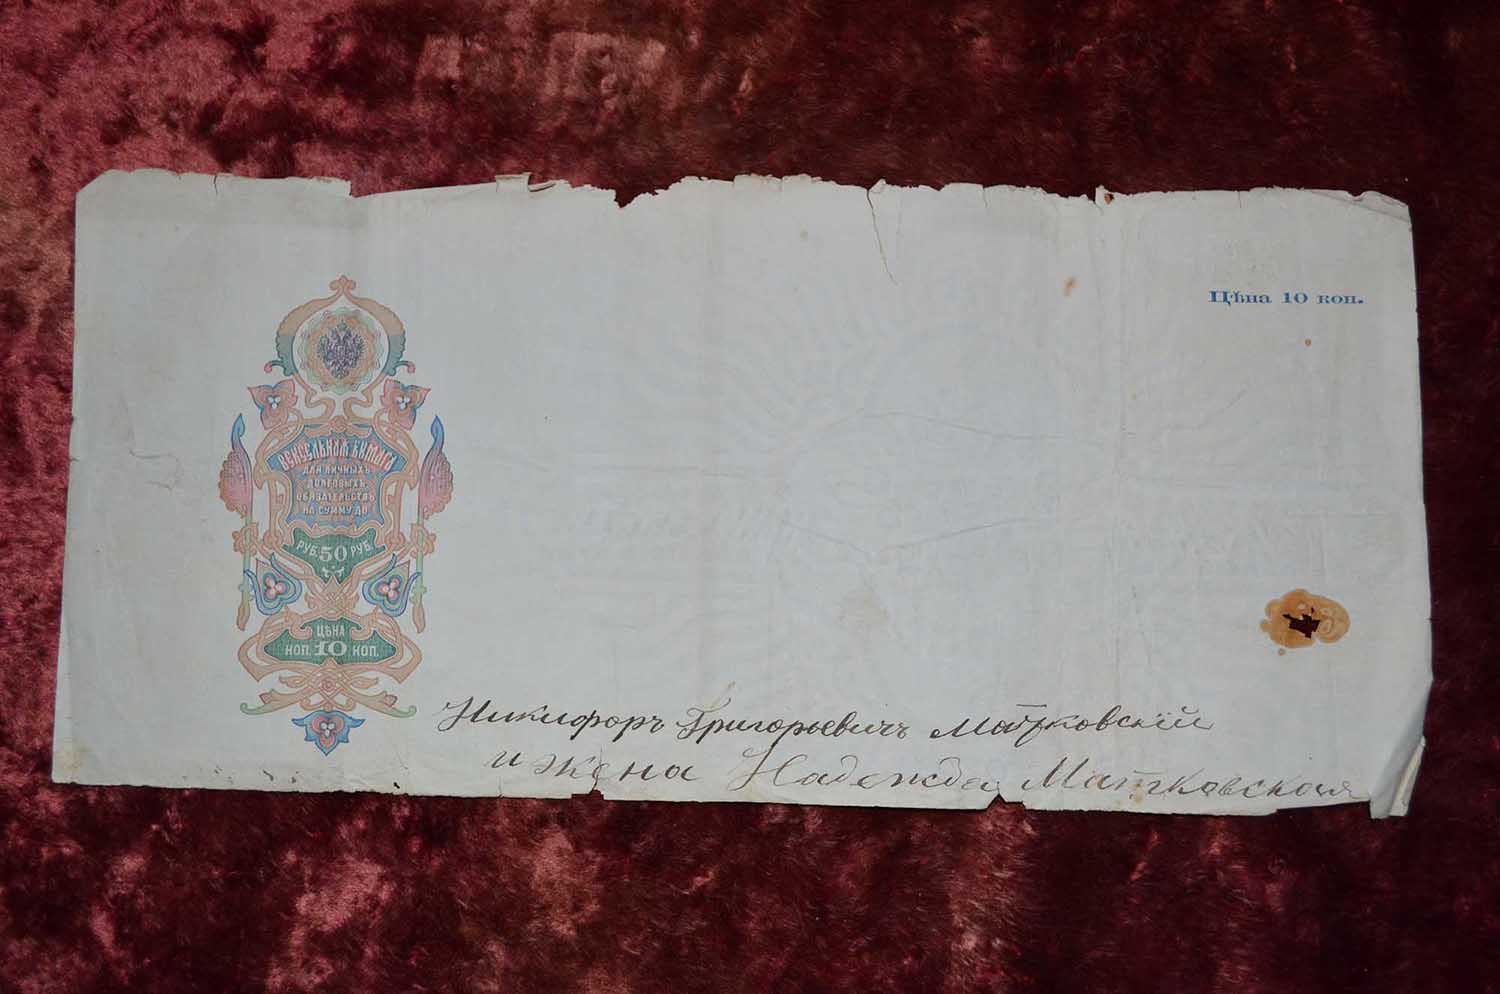 Цѣна 10 коп.
ВЕКСЕЛЬНАЯ БУМАГА
ДЛЯ ЛИЧНЫХЪ
ДОЛГОВЫХЪ
ОБЯЗАТЕЛЬСТВЪ
НА СУММУ ДО
РУБ. 50 РУБ.
ЦѢНА
КОП. 10 КОП.
Никифоръ Григорьевичъ Матковскій
и жена Надежда Матковская